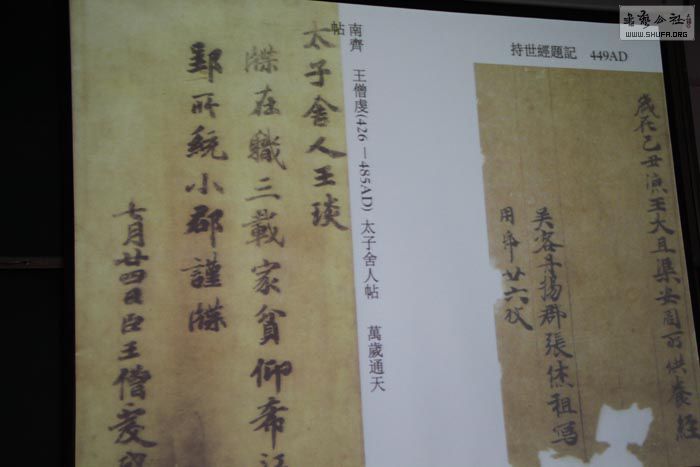 書藝公社
WWW.SHUFA.ORG
持世經題記 449AD
歲在己丑涼王大且渠安周所供養經
吳客丹揚郡張休祖寫
用帋廿六枚
南齊 王僧虔(426 — 485AD) 太子舍人帖 萬歲通天
帖
太子舍人王琰
牒在職三載家貧仰希
郢所統小郡謹牒
七月廿四日臣王僧虔